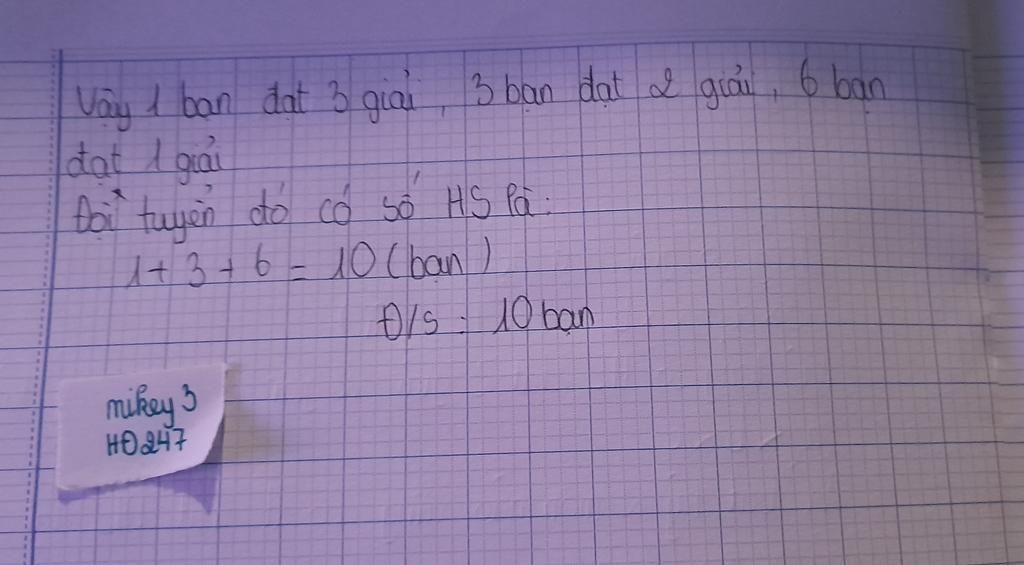 Vậy 1 bạn đạt 3 giải, 3 bạn đạt 2 giải, 6 bạn
đạt 1 giải
Đội tuyển đó có số HS là:
1 + 3 + 6 = 10 (bạn)
Đ/S: 10 bạn
mikey 3
HĐ247